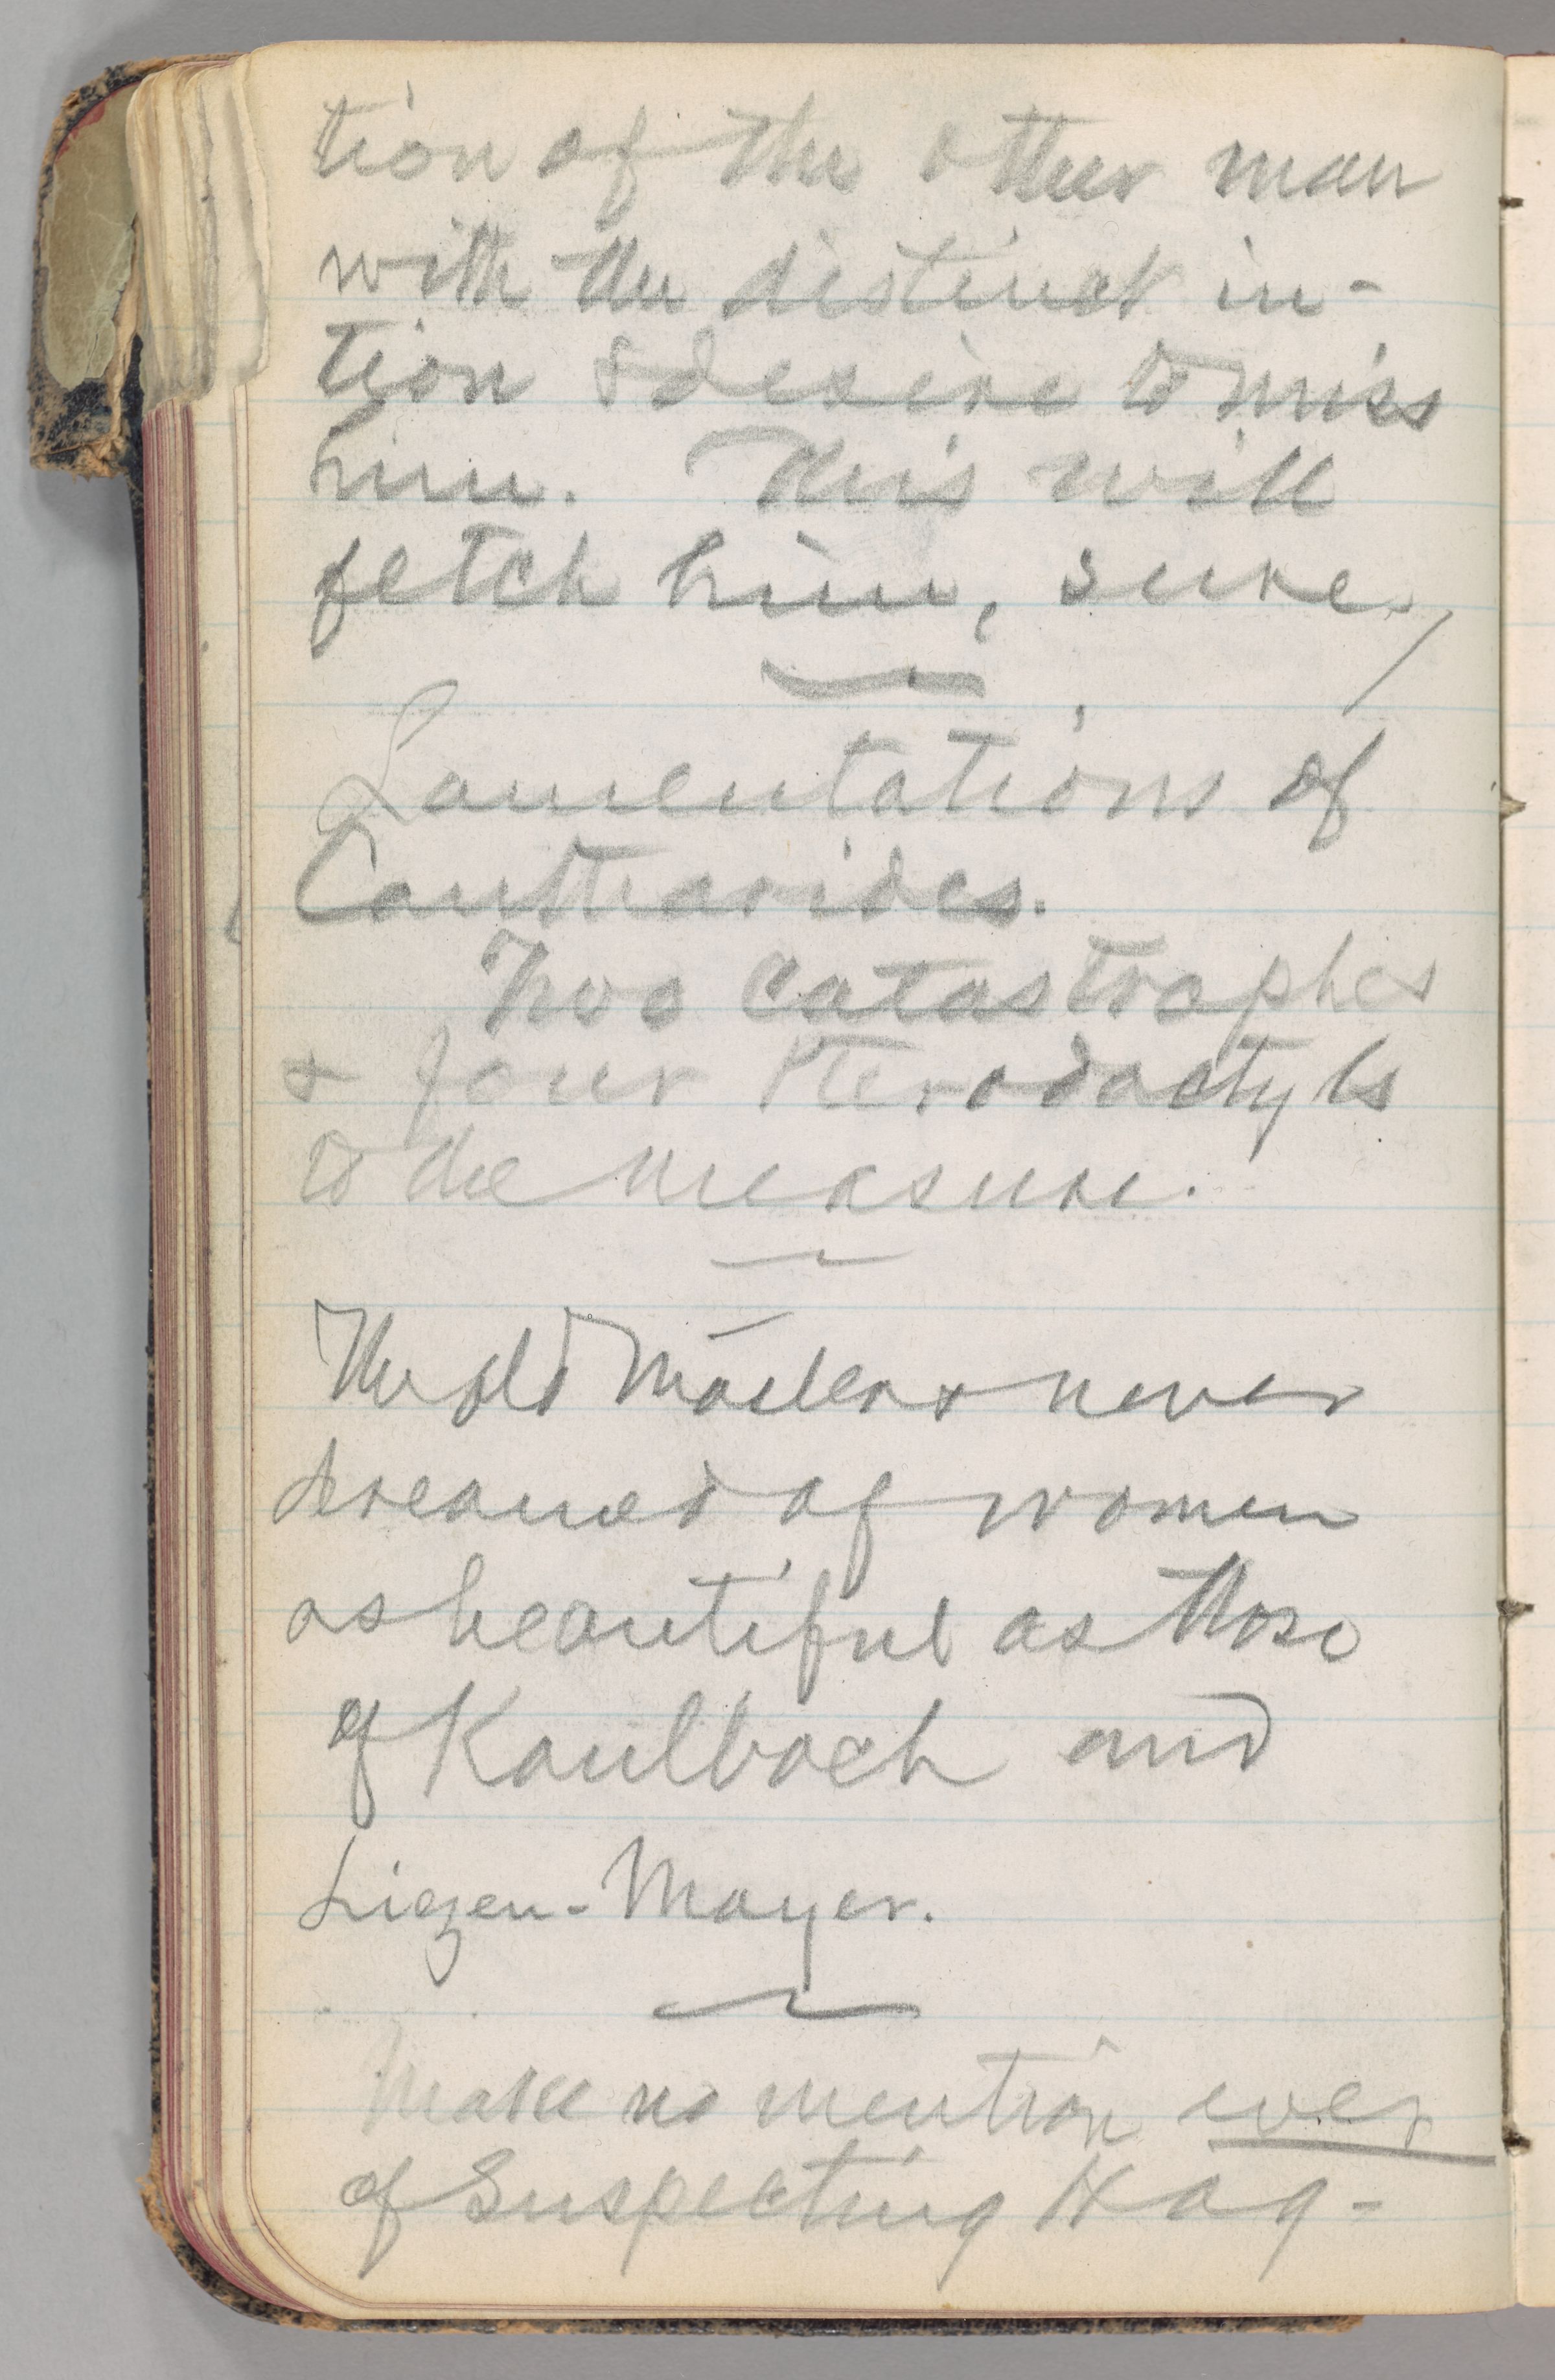 tion of the other man
with the distinct in-
tion & desire to miss
him. This will
fetch him, sure.
Lamentations of
Cantharides.
Two Catastrophes
& four Pterodactyls
to the measure.
The old Masters never
dreamed of women
as beautiful as those
of Kaulbach and
Liezen-Mayer.
Make no mention ever
of Suspecting Hag-